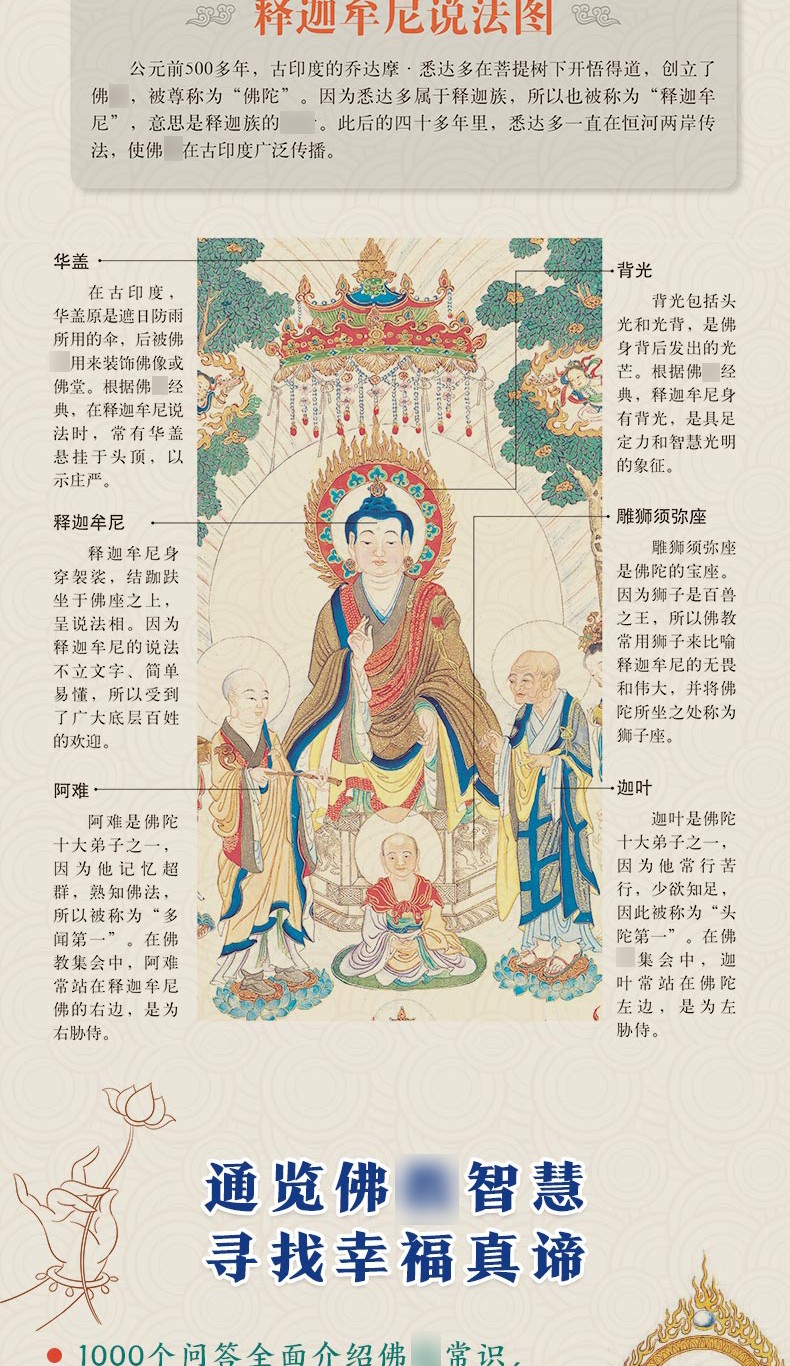 释迦牟尼说法图
公元前500多年，古印度的乔达摩·悉达多在菩提树下开悟得道，创立了
佛，被尊称为“佛陀”。因为悉达多属于释迦族，所以也被称为“释迦牟
尼”，意思是释迦族的。此后的四十多年里，悉达多一直在恒河两岸传
法，使佛在古印度广泛传播。
华盖
在古印度，
华盖原是遮日防雨
所用的伞，后被佛
用来装饰佛像或
佛堂。根据佛经
典，在释迦牟尼说
法时，常有华盖
悬挂于头顶，以
示庄严。
背光
背光包括头
光和光背，是佛
身背后发出的光
芒。根据佛经
典，释迦牟尼身
有背光，是具足
定力和智慧光明
的象征。
释迦牟尼
释迦牟尼身
穿袈裟，结跏趺
坐于佛座之上，
呈说法相。因为
释迦牟尼的说法
不立文字、简单
易懂，所以受到
了广大底层百姓
的欢迎。
雕狮须弥座
雕狮须弥座
是佛陀的宝座。
因为狮子是百兽
之王，所以佛教
常用狮子来比喻
释迦牟尼的无畏
和伟大，并将佛
陀所坐之处称为
狮子座。
阿难
阿难是佛陀
十大弟子之一，
因为他记忆超
群，熟知佛法，
所以被称为“多
闻第一”。在佛
教集会中，阿难
常站在释迦牟尼
佛的右边，是为
右胁侍。
迦叶
迦叶是佛陀
十大弟子之一，
因为他常行苦
行，少欲知足，
因此被称为“头
陀第一”。在佛
集会中，迦
叶常站在佛陀
左边，是为左
胁侍。
通览佛智慧
寻找幸福真谛
1000个问答全面介绍佛常识，